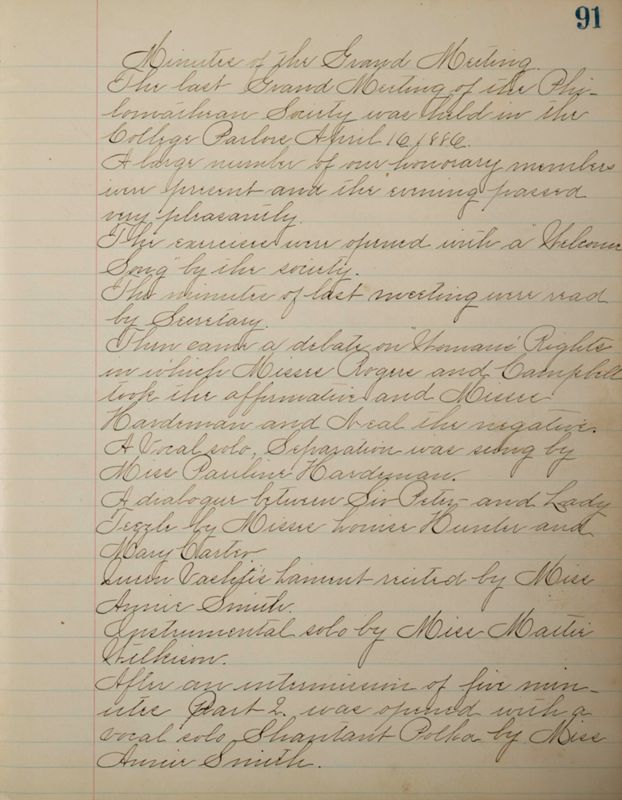 91
Minutes of the Grand Meeting.
The last Grand Meeting of the Phi-
lomathean Society was held in the
College Parlors April 16, 1886.
A large number of our honorary members
were present and the evening passed
very pleasantly.
The exercises were opened with a "Welcome
Song" by the society.
The minutes of last meeting were read
by Secretary.
Then came a debate on "Woman's Rights"
in which Misses Rogers and Campbell
took the affirmative and Misses
Hardeman and Neal the negative.
A Vocal solo, Separation was sung by
Miss Pauline Hardeman.
A dialogue between Sir Peter and Lady
Teazle by Misses Louise Hunter and
Mary
Queen Vashti's Lament recited by Miss
Annie Smith.
Instrumental solo by Miss Mattie
Wilkison.
After an intermission of five min-
utes Part 2 was opened with a
vocal solo, Polka by Miss
Annie Smith.